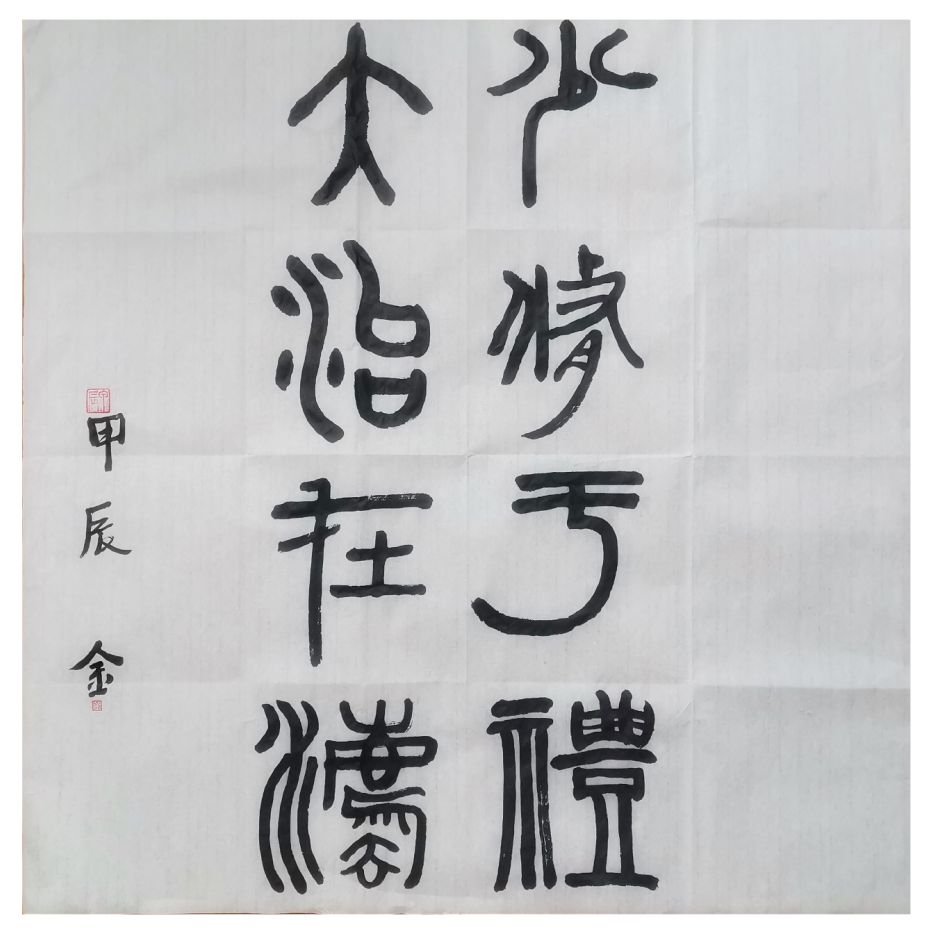 少修于禮
大治在灋
甲辰 金